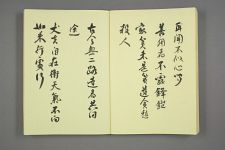 善用者不露鋒鋩
家貧未是貧道貧愁
殺人
古今無二路達者共同
途
丈夫自有衝天氣不向
如来行處行